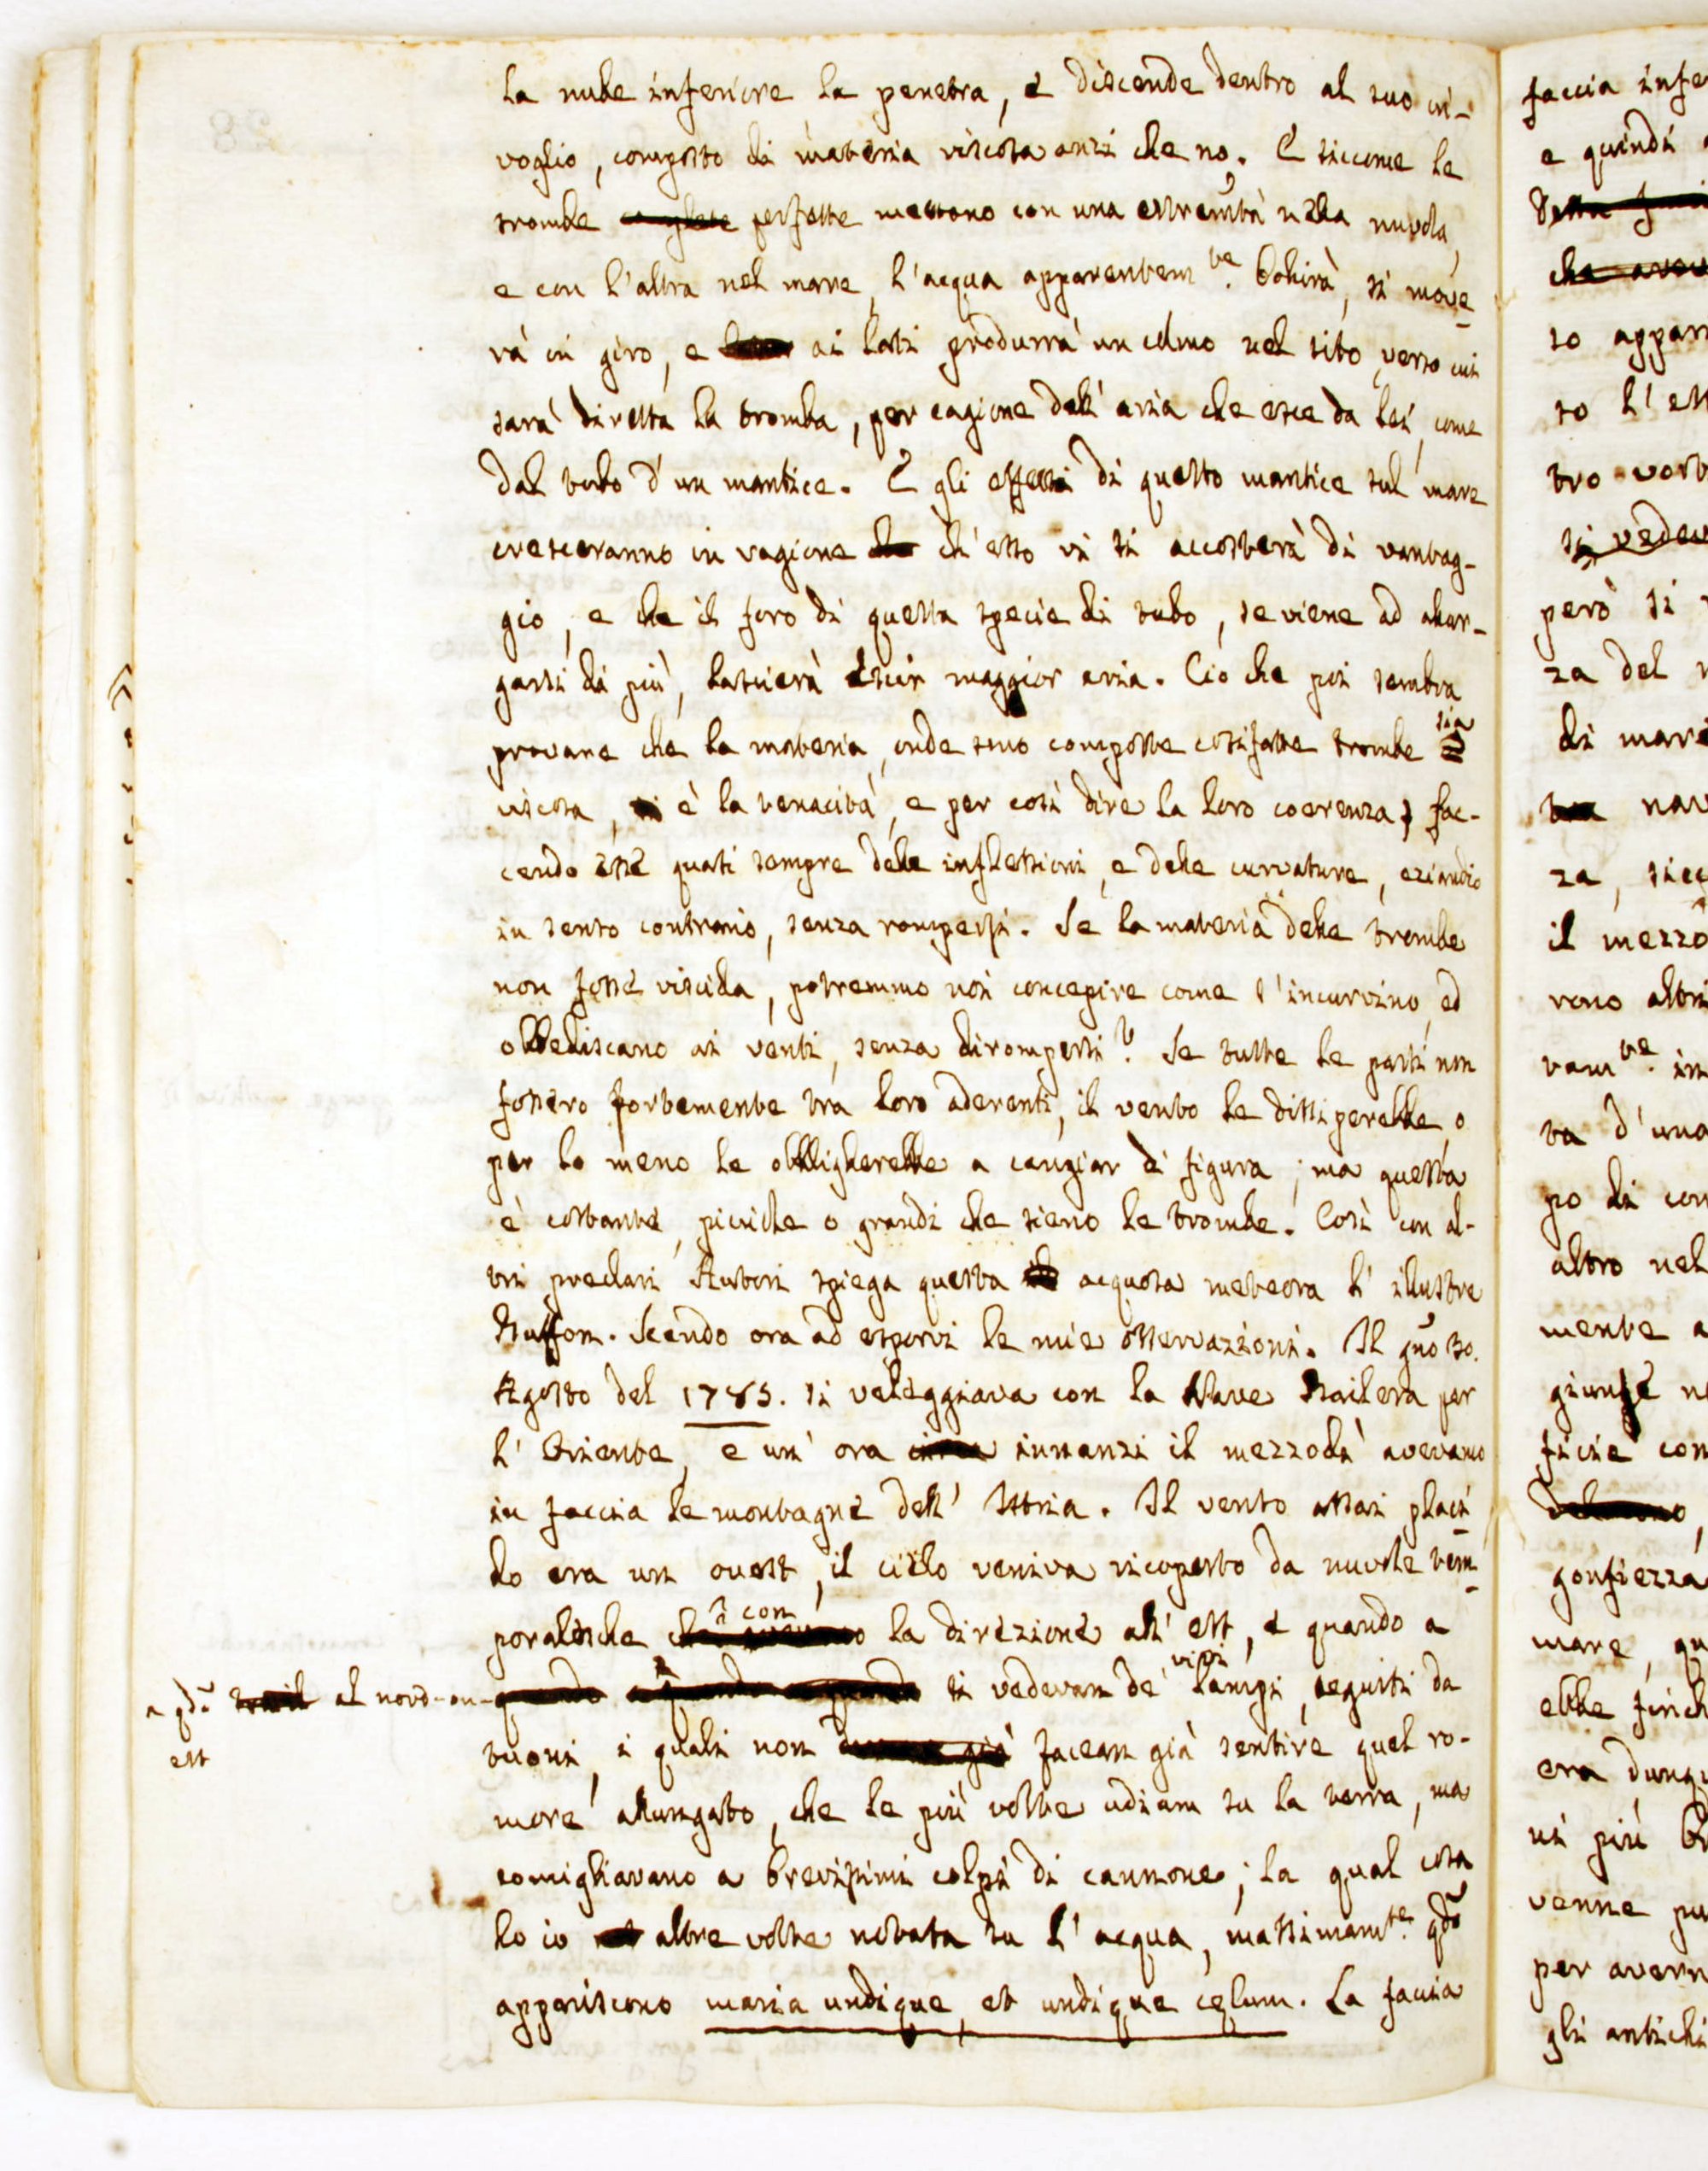 la nube inferiore la penetra, e discende dentro al suo in-
voglio, composto di materia viscosa anzi che no. E siccome le
trombe perfette mettono con una estremità nella nuvola,
e con l'altra nel mare, l'acqua apparentem.te bolirà, si move-
rà in giro, e ai lati produrrà un colmo nel sito, verso cui
sarà diretta la tromba, per cagione dell'aria che esce da lei, come
dal tubo d'un mantice. E gli effetti di questo mantice sul mare
cresceranno in ragione ch'esso vi si accosterà di vantag-
gio, e che il foro di questa specie di tubo, se viene ad alar-
garsi di più, lascierà escir maggior aria. Ciò che poi sembra
provare che la materia, onde sono composte cosifatte trombe sia
viscosa, è la tenacità, e per così dire la loro coerenza, fac-
cendo esse quasi sempre delle inflessioni, e delle curvature, eziandio
in senso contrario, senza rompersi. Se la materia delle trombe
non fosse viscida, potremmo noi concepire come s'incurvino, ed
obbediscano ai venti, senza dirompersi? Se tutte le parti non
fossero fortemente tra loro aderenti, il vento le dissiperebbe, o
per lo meno le obbligherebbe a cangiar di figura; ma questa
è costante, picciole o grandi che sieno le trombe. Così con al-
tri preclari Autori spiega questa acquosa meteora l'illustre
Buffon. Scendo ora ad esporvi le mie osservazioni. Il gno 30.
Agosto del 1785. si veleggiava con la Nave Bailera per
l'Oriente, e un'ora innanzi il mezzodì avevamo
in faccia le montagne dell'Istria. Il vento assai placi-
do era un ouest, il cielo veniva ricoperto da nuvole tem-
poralesche con la direzione all'est, e quando a
qdo al nord-ou-
est
si vedevan de' vivi lampi, seguiti da
tuoni, i quali non facean già sentire quel ro-
more allungato, che le più volte udiam su la terra, ma
somigliavano a brevissimi colpi di cannone; la qual cosa
ho io altre volte notata su l'acqua, massimam.te qdo
appariscono maria undique, et undique cęlum. La faccia
faccia infe
e quindi
che avev
so appar
to l'est
tro vort
si vedev
però si
za del
di mare
nav
za, sicc
il mezzo
rono altri
vam.te in
ta d'una
po di con
altro nel
mente a
giunse n
ficie con
gonfiezza
mare, qu
ebbe finch
era dunqu
ni più br
venne pu
per avern
gli antichi